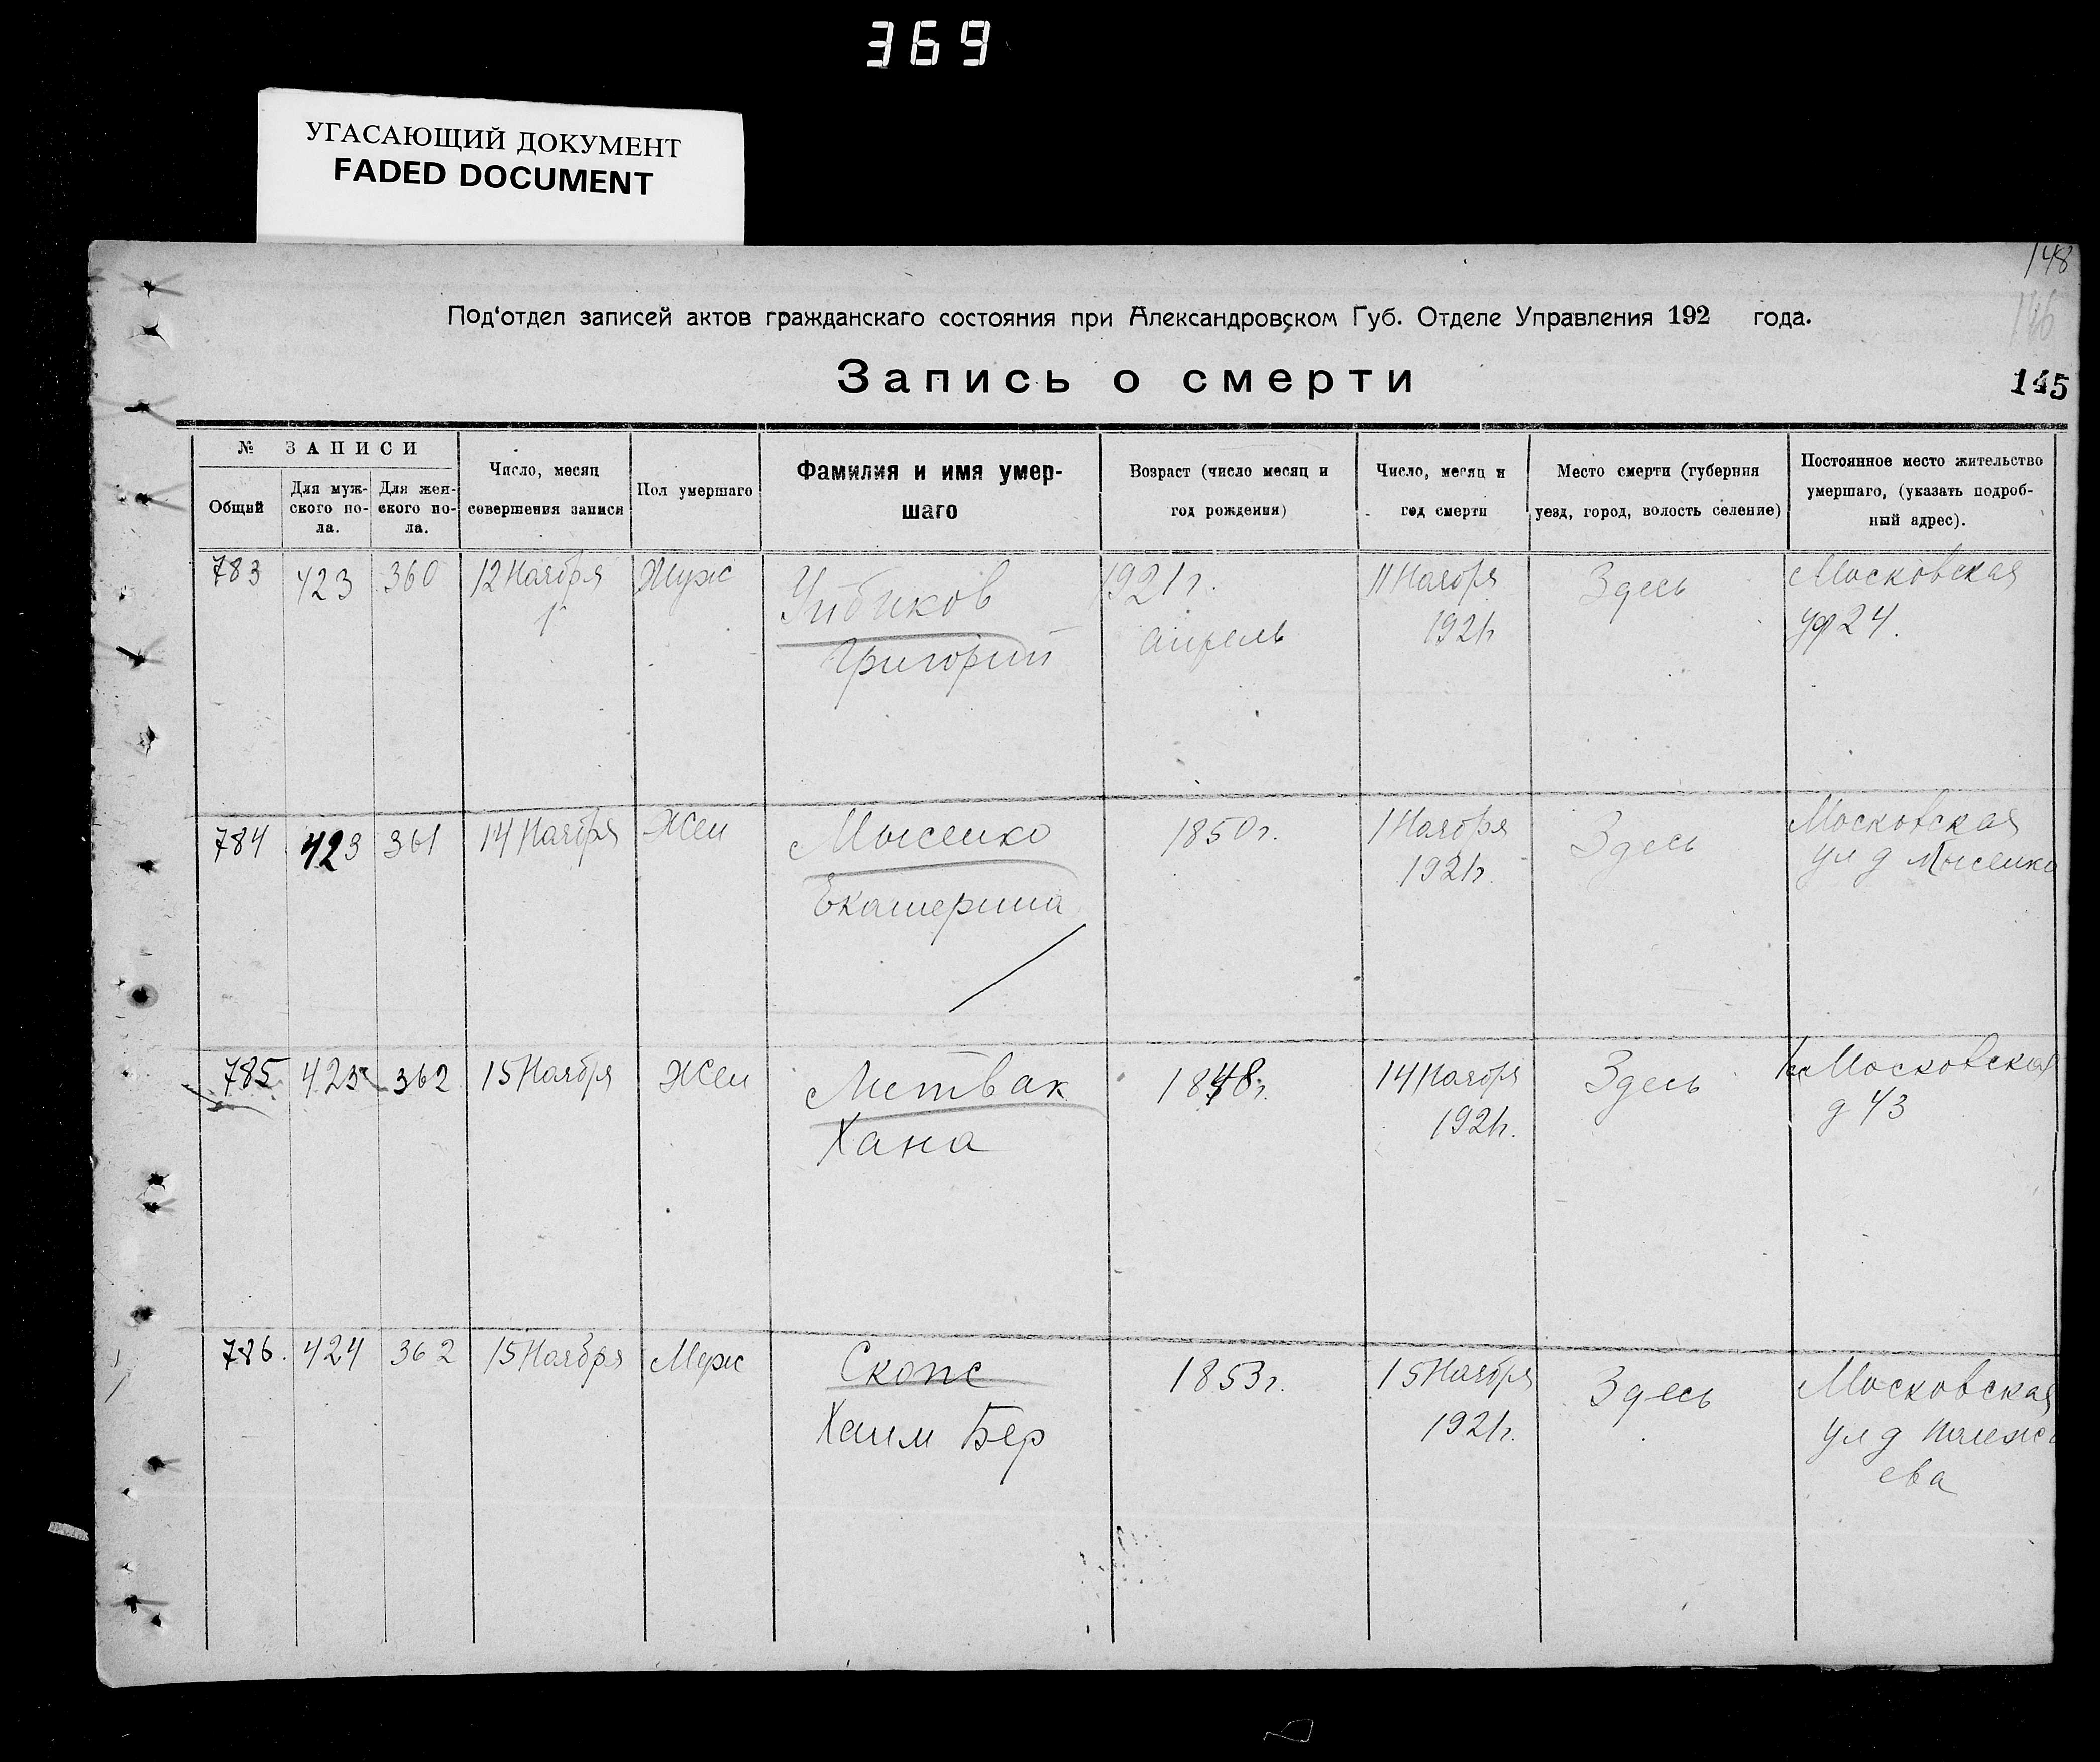 369
УГАСАЮЩИЙ ДОКУМЕНТ
FADED DOCUMENT
148
146
Под‘отдел записей актов гражданскаго состояния при Александровском Губ. Отделе Управления 192 года.
Запись о смерти
145
№ ЗАПИСИ
Общий
Для муж-
ского по-
ла.
Для жен-
ского по-
ла.
Число, месяц
совершения записи
Пол умершаго
Фамилия и имя умер-
шаго
Возраст (число месяц и
год рождения)
Число, месяц и
год смерти
Место смерти (губерния
уезд, город, волость селение)
Постоянное место жительство
умершаго, (указать подроб-
ный адрес).
783 423 360 12 Ноября Муж
Григорий
1921 г.
апрель
11 Ноября
1921г
Здесь
Московская
24.
784 423 361 14 Ноября Жен
Мысенко
Екатерина
1850 г.
1 Ноября
1921г.
Здесь
Московская
ул д Мысенко
785 423 362 15 Ноября Жен
Литвак
Хана
1848г.
14 Ноября
1921г.
Здесь
Московская
д 43
786. 424 362 15 Ноября Муж
Скопс
Хаим Бер
1853г.
15 Ноября
1921г.
Здесь
Московская
ул д
ева